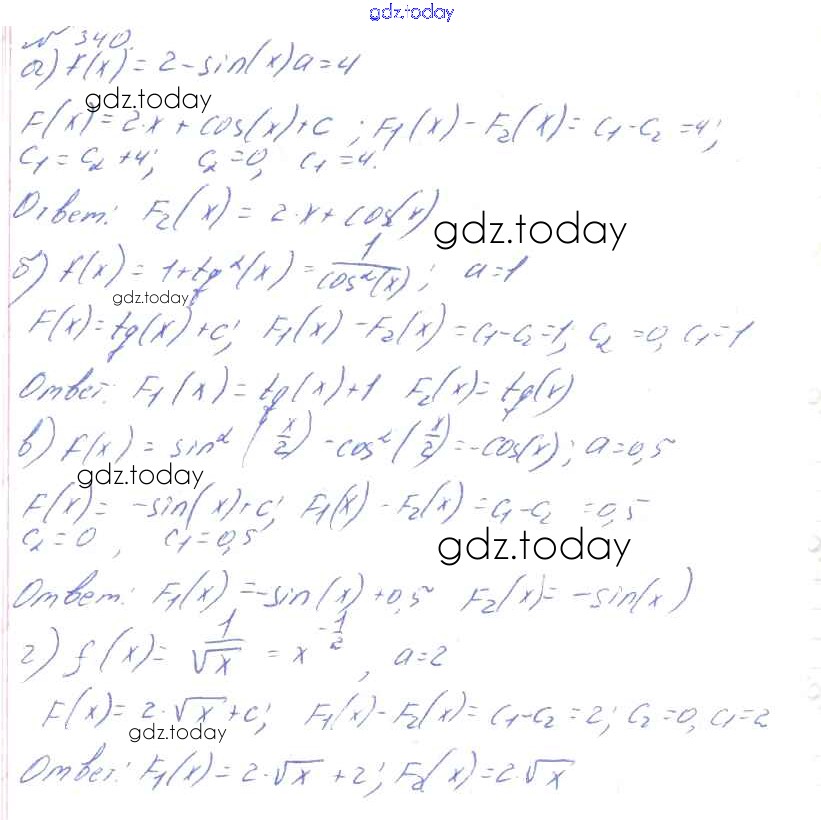 gdz.today
№ 340.
а) f(x) = 2-sin(x) a=4
gdz.today
F(x)=2·x+cos(x)+c ; F₁(x)-F₂(x)= c₁-c₂ =4;
c₁=c₂+4; c₂=0, c₁=4.
Ответ: F₂(x) = 2·x+cos(x)
gdz.today
б) f(x)=1+tg²(x)=1/cos²(x); a=1
gdz.today
F(x)=tg(x)+c; F₁(x)-F₂(x)=c₁-c₂=1; c₂=0, c₁=1
Ответ: F₁(x)=tg(x)+1 F₂(x)=tg(x)
в) f(x)=sin²(x/2)-cos²(x/2)=-cos(x); a=0,5
gdz.today
F(x)= -sin(x)+c; F₁(x)-F₂(x)=c₁-c₂ =0,5
c₂=0, c₁=0,5
gdz.today
Ответ: F₁(x)=-sin(x)+0,5 F₂(x)=-sin(x)
г) f(x)=1/√x = x^(-1/2), a=2
F(x)=2·√x+c; F₁(x)-F₂(x)=c₁-c₂=2; c₂=0, c₁=2
gdz.today
Ответ: F₁(x)=2·√x+2; F₂(x)=2·√x